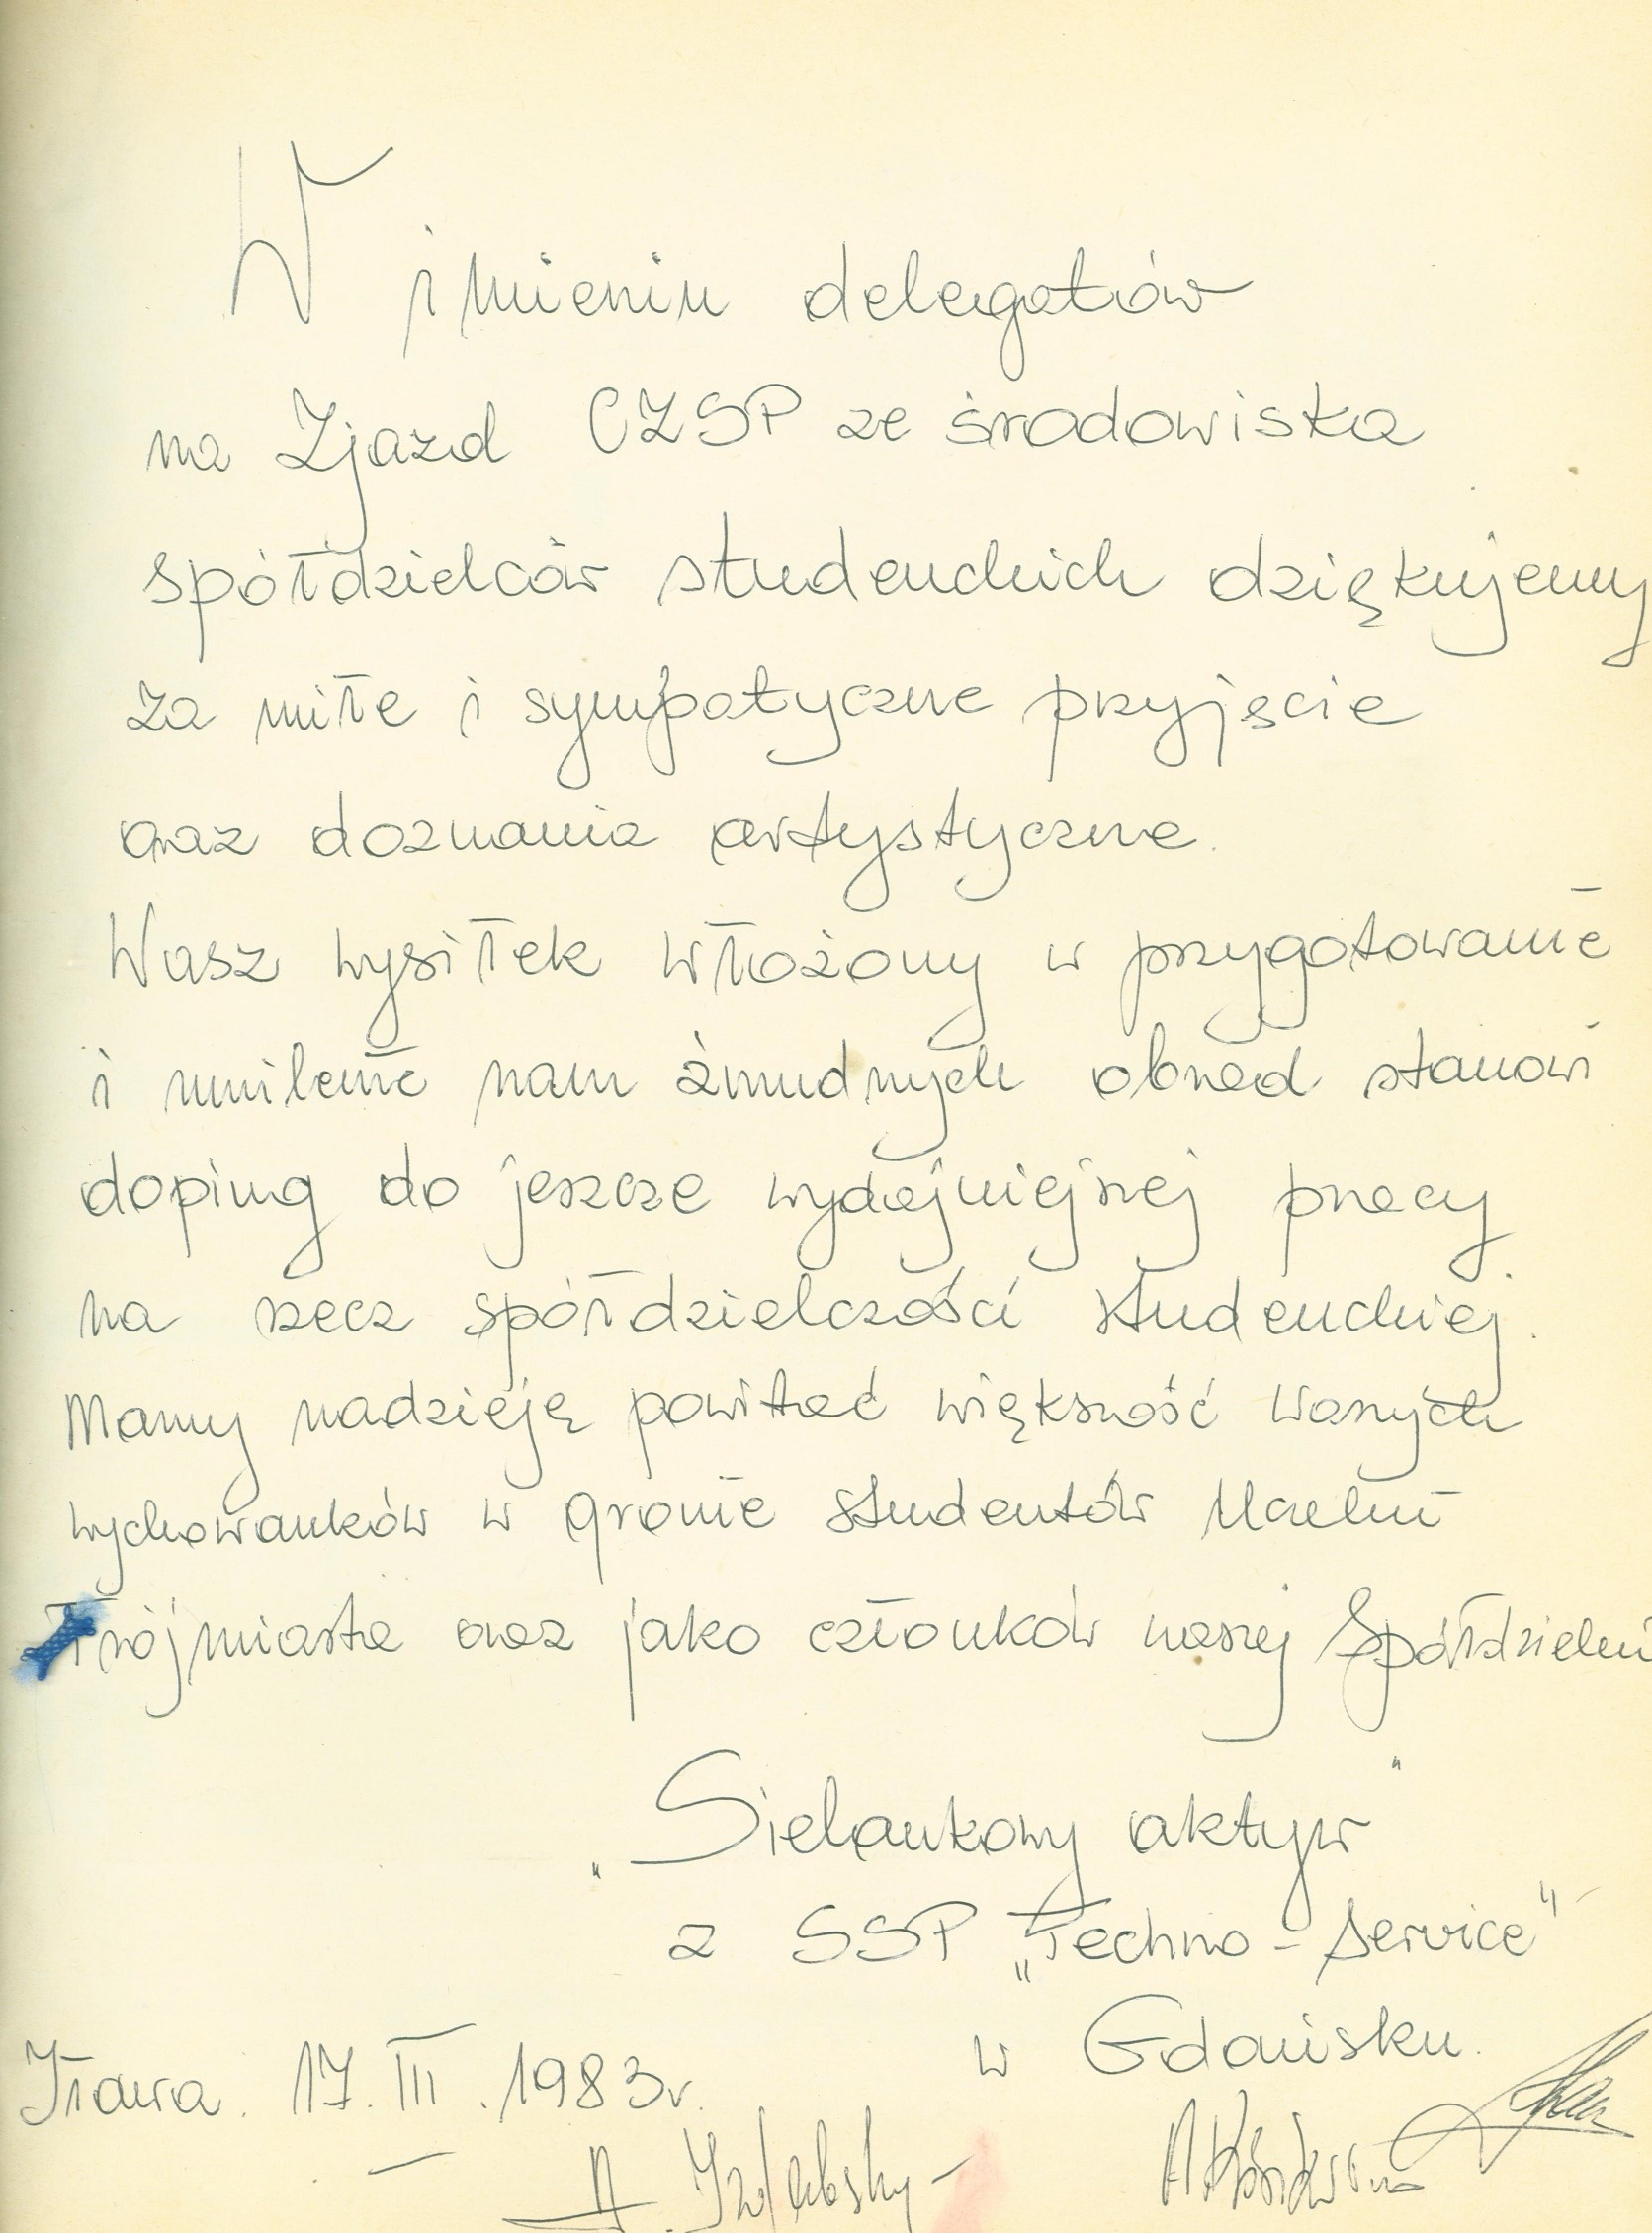 W imieniu delegatów
na Zjazd CZSP ze środowiska
spółdzielców studenckich dziękujemy
za miłe i sympatyczne przyjęcie
oraz doznania artystyczne.
Wasz wysiłek włożony w przygotowanie
i umilenie nam żmudnych obrad stanowi
doping do jeszcze wydajniejszej pracy
na rzecz spółdzielczości studenckiej.
Mamy nadzieję powitać większość Waszych
wychowanków w gronie studentów Uczelni
Trójmiasta oraz jako członków naszej Spółdzielni
„Sielankowy aktyw"
z SSP „Techno-Service"
w Gdańsku.
Iława. 17.III.1983r.
A.